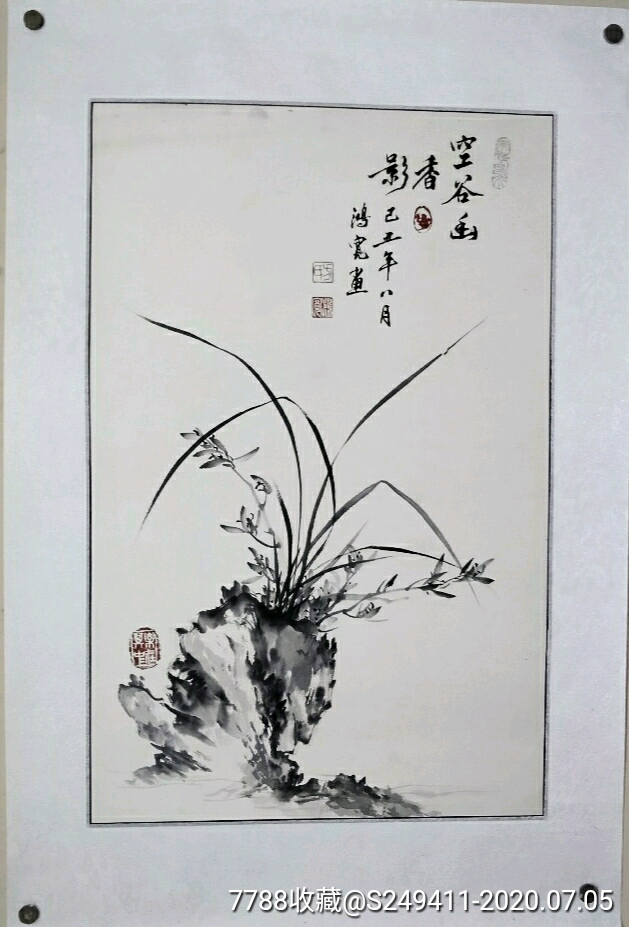 空谷幽
香
影
己丑年八月
鴻寛畫
7788收藏@S249411-2020.07.05